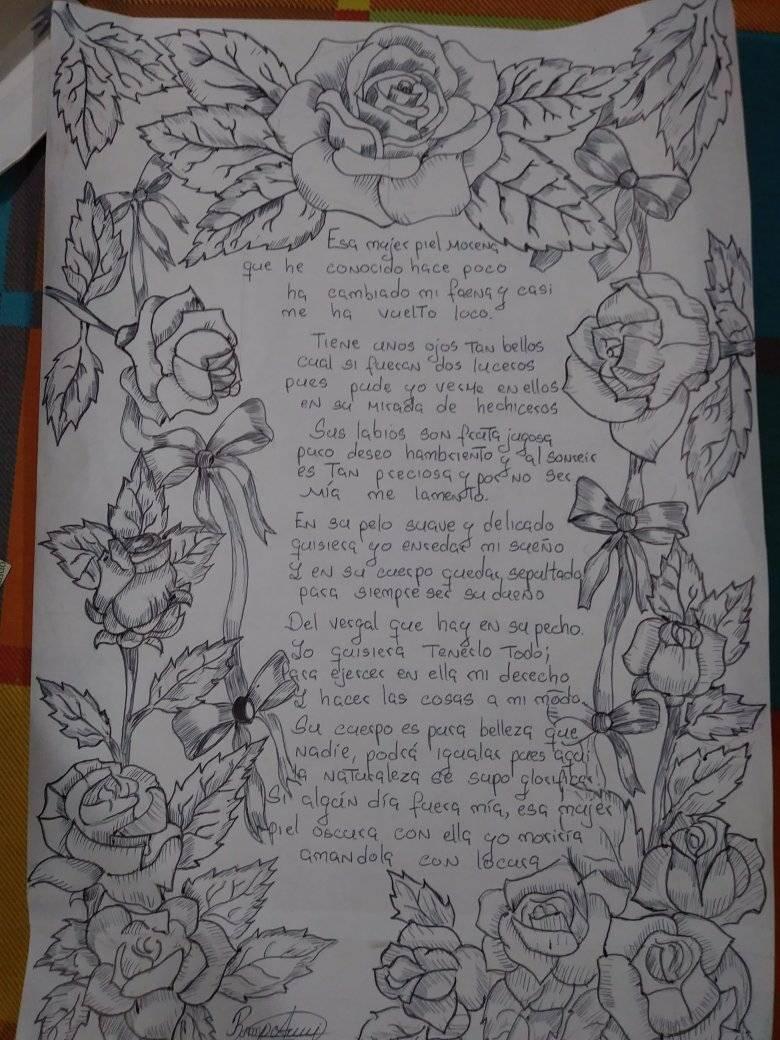 Esa mujer piel morena
que he conocido hace poco
ha cambiado mi faena y casi
me ha vuelto loco.
Tiene unos ojos tan bellos
cual si fueran dos luceros
pues pude yo verme en ellos
en su mirada de hechiceros
Sus labios son fruta jugosa
puro deseo hambriento y al sonreir
es tan preciosa y por no ser
mía me lamento.
En su pelo suave y delicado
quisiera yo enredar mi sueño
Y en su cuerpo quedar sepultado
para siempre ser su dueño
Del vergal que hay en su pecho.
Yo quisiera tenerlo todo;
para ejercer en ella mi derecho
Y hacer las cosas a mi modo
Su cuerpo es pura belleza que
nadie, podrá igualar pues aquí
la naturaleza se supo glorificar.
Si algún día fuera mía, esa mujer
piel oscura con ella yo moriría
amandola con locura